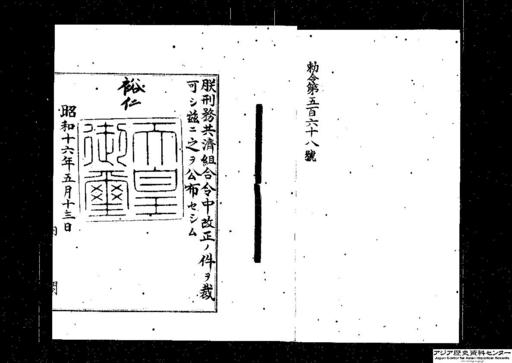 勅令第五百六十八號
朕刑務共濟組合令中改正ノ件ヲ裁
可シ玆ニ之ヲ公布セシム
裕仁
天皇
御璽
昭和十六年五月十三日
内閣
アジア歴史資料センター
Japan Center for Asian Historical Records